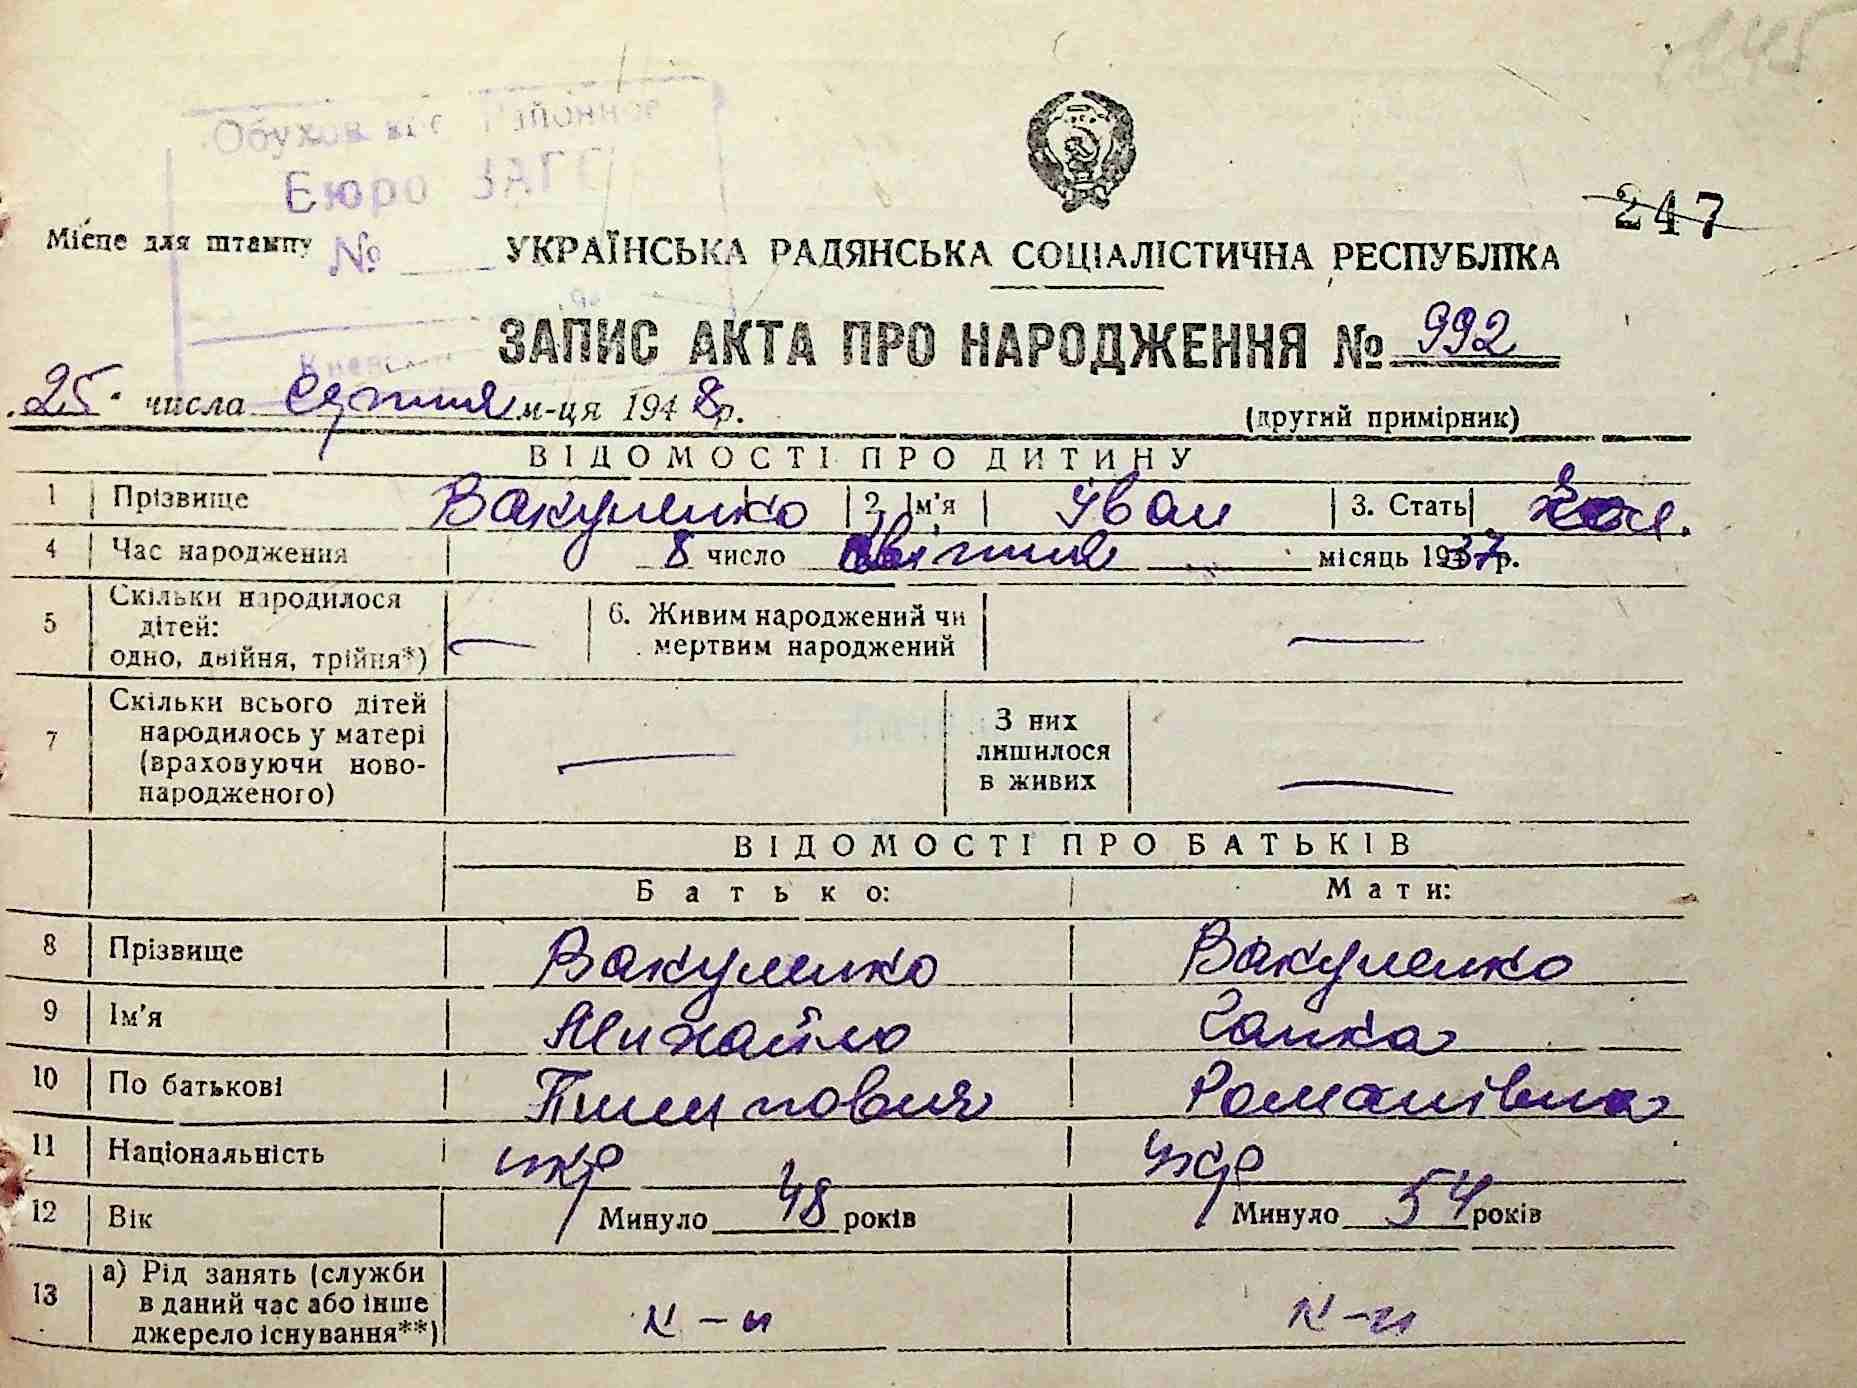 Обухов Районное
Бюро ЗАГС
№
Місце для штампу
247
УКРАЇНСЬКА РАДЯНСЬКА СОЦІАЛІСТИЧНА РЕСПУБЛІКА
ЗАПИС АКТА ПРО НАРОДЖЕННЯ № 992
25 числа серпня м-ця 1948 р.
(другий примірник)
ВІДОМОСТІ ПРО ДИТИНУ
1 Прізвище Вакуленко 2. Ім'я Іван 3. Стать чол.
4 Час народження 8 число квітня місяць 1937 р.
5 Скільки народилося дітей: одно, двійня, трійня*) — 6. Живим народжений чи мертвим народжений —
7 Скільки всього дітей народилось у матері (враховуючи ново-народженого) — З них лишилося в живих —
ВІДОМОСТІ ПРО БАТЬКІВ
Батько: Мати:
8 Прізвище Вакуленко Вакуленко
9 Ім'я Михайло Гапка
10 По батькові Пилипович Романівна
11 Національність укр укр
12 Вік Минуло 48 років Минуло 54 років
13 а) Рід занять (служби в даний час або інше джерело існування**) к-к к-к